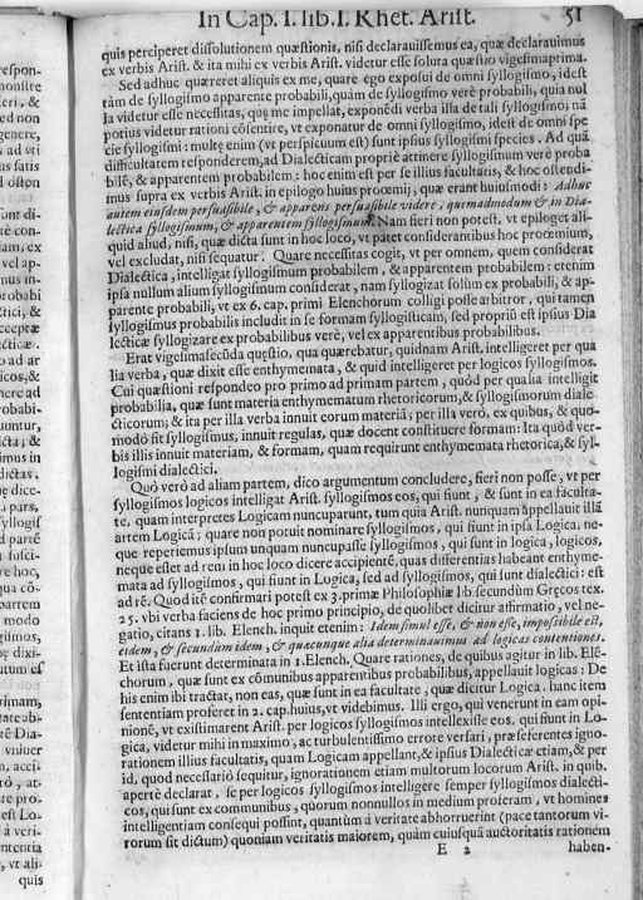 In Cap. I. lib. I. Rhet. Arist. 51
quis perciperet dissolutionem quæstionis, nisi declarauissemus ea, quæ declarauimus
ex verbis Arist. & ita mihi ex verbis Arist. videtur esse soluta quæstio vigesimaprima.
Sed adhuc quæreret aliquis ex me, quare ego exposui de omni syllogismo, idest
tàm de syllogismo apparente probabili, quàm de syllogismo verè probabili, quia nul
la videtur esse necessitas, quę me impellat, exponēdi verba illa de tali syllogismo; nā
potius videtur rationi cōsentire, vt exponatur de omni syllogismo, idest de omni spe
cie syllogismi: multę enim (vt perspicuum est) sunt ipsius syllogismi species. Ad quā
difficultatem responderem, ad Dialecticam propriè attinere syllogismum verè proba
bilē, & apparentem probabilem: hoc enim est per se illius facultatis, & hoc ostendi-
mus supra ex verbis Arist. in epilogo huius proœmij, quæ erant huiusmodi: Adhuc
autem eiusdem persuasibile, & apparens persuasibile videre, quemadmodum & in Dia-
lectica syllogismum, & apparentem syllogismum. Nam fieri non potest, vt epiloget ali-
quid aliud, nisi, quæ dicta sunt in hoc loco, vt patet considerantibus hoc proœmium,
vel excludat, nisi sequatur. Quare necessitas cogit, vt per omnem, quem considerat
Dialectica, intelligat syllogismum probabilem, & apparentem probabilem: etenim
ipsa nullum alium syllogismum considerat, nam syllogizat solùm ex probabili, & ap-
parente probabili, vt ex 6. cap. primi Elenchorum colligi posse arbitror, qui tamen
syllogismus probabilis includit in se formam syllogisticam, sed propriū est ipsius Dia
lecticæ syllogizare ex probabilibus verè, vel ex apparentibus probabilibus.
Erat vigesimasecūda quęstio, qua quærebatur, quidnam Arist. intelligeret per qua
lia verba, quæ dixit esse enthymemata, & quid intelligeret per logicos syllogismos.
Cui quæstioni respondeo pro primo ad primam partem, quòd per qualia intelligit
probabilia, quæ sunt materia enthymematum rhetoricorum, & syllogismorum diale
cticorum; & ita per illa verba innuit eorum materiā; per illa verò, ex quibus, & quo-
modò sit syllogismus, innuit regulas, quæ docent constituere formam: Ita quòd ver-
bis illis innuit materiam, & formam, quam requirunt enthymemata rhetorica, & syl-
logismi dialectici.
Quò verò ad aliam partem, dico argumentum concludere, fieri non posse, vt per
syllogismos logicos intelligat Arist. syllogismos eos, qui fiunt, & sunt in ea faculta-
te, quam interpretes Logicam nuncuparunt, tum quia Arist. nunquam appellauit illā
artem Logicā; quare non potuit nominare syllogismos, qui fiunt in ipsa Logica, ne-
que reperiemus ipsum unquam nuncupasse syllogismos, qui sunt in logica, logicos,
neque esset ad rem in hoc loco dicere accipientē, quas differentias habeant enthyme-
mata ad syllogismos, qui fiunt in Logica, sed ad syllogismos, qui sunt dialectici: est
ad rē. Quod itē confirmari potest ex 3. primæ Philosophiæ lib. secundùm Gręcos tex.
25. vbi verba faciens de hoc primo principio, de quolibet dicitur affirmatio, vel ne-
gatio, citans 1. lib. Elench. inquit etenim: Idem simul esse, & non esse, impossibile est,
eidem, & secundùm idem, & quæcunque alia determinauimus ad logicas contentiones.
Et ista fuerunt determinata in 1. Elench. Quare rationes, de quibus agitur in lib. Elē-
chorum, quæ sunt ex cōmunibus apparentibus probabilibus, appellauit logicas: De
his enim ibi tractat, non eas, quæ sunt in ea facultate, quæ dicitur Logica. hanc item
sententiam proferet in 2. cap. huius, vt videbimus. Illi ergo, qui venerunt in eam opi-
nionē, vt existimarent Arist. per logicos syllogismos intellexisse eos. qui fiunt in Lo-
gica, videtur mihi in maximo, ac turbulentissimo errore versari, præseferentes igno-
rationem illius facultatis, quam Logicam appellant, & ipsius Dialecticæ etiam, & per
id, quod necessariò sequitur, ignorationem etiam multorum locorum Arist. in quib.
apertè declarat, se per logicos syllogismos intelligere semper syllogismos dialecti-
cos, qui sunt ex communibus, quorum nonnullos in medium proferam, vt homines
intelligentiam consequi possint, quantùm à veritate abhorruerint (pace tantorum vi-
rorum sit dictum) quoniam veritatis maiorem, quàm cuiusquā auctoritatis rationem
E 2 haben-